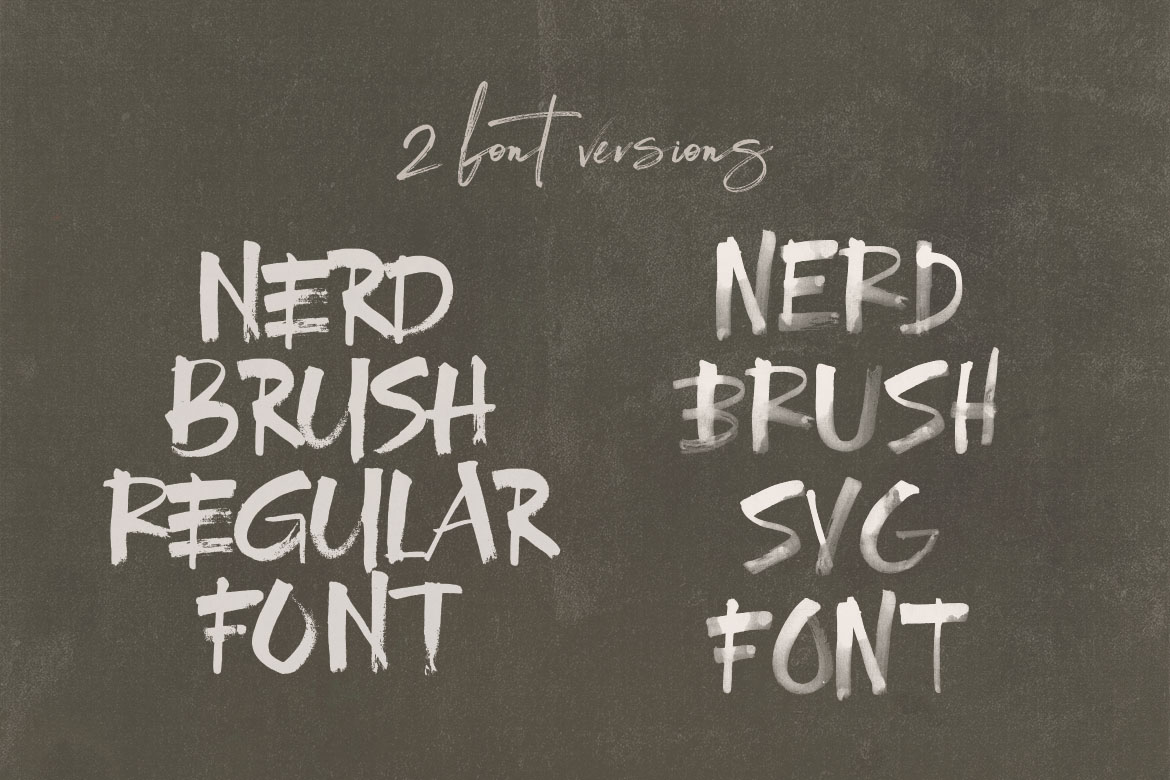 2 font versions
NERD
BRUSH
REGULAR
FONT
NERD
BRUSH
SVG
FONT